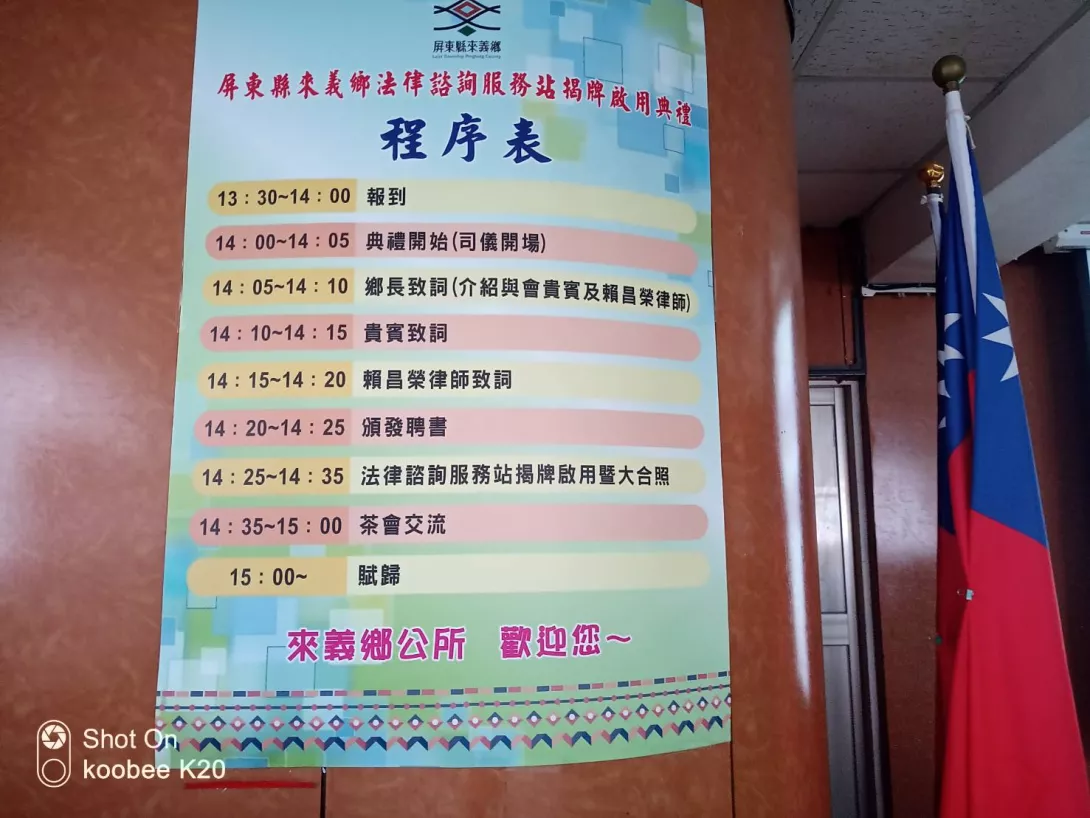 屏東縣來義鄉
屏東縣來義鄉法律諮詢服務站揭牌啟用典禮
程序表
13：30~14：00 報到
14：00~14：05 典禮開始(司儀開場)
14：05~14：10 鄉長致詞(介紹與會貴賓及賴昌榮律師)
14：10~14：15 貴賓致詞
14：15~14：20 賴昌榮律師致詞
14：20~14：25 頒發聘書
14：25~14：35 法律諮詢服務站揭牌啟用暨大合照
14：35~15：00 茶會交流
15：00~ 賦歸
來義鄉公所 歡迎您～
Shot On
koobee K20